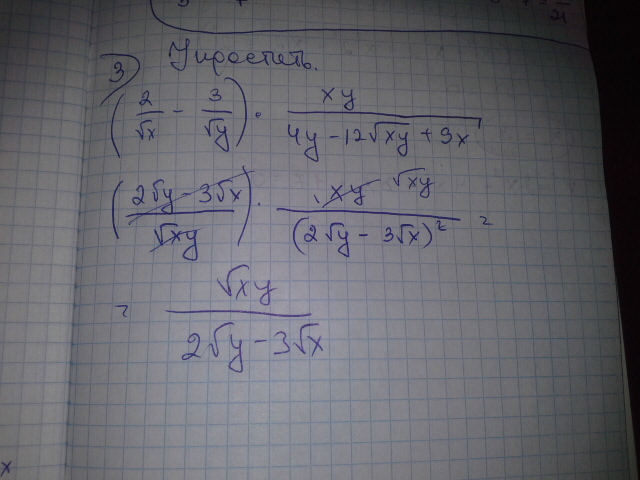 3) Упростить.
(2/√x - 3/√y) · xy/(4y - 12√xy + 9x)
((2√y - 3√x)/√xy) · xy √xy/(2√y - 3√x)² =
= √xy/(2√y - 3√x)
x